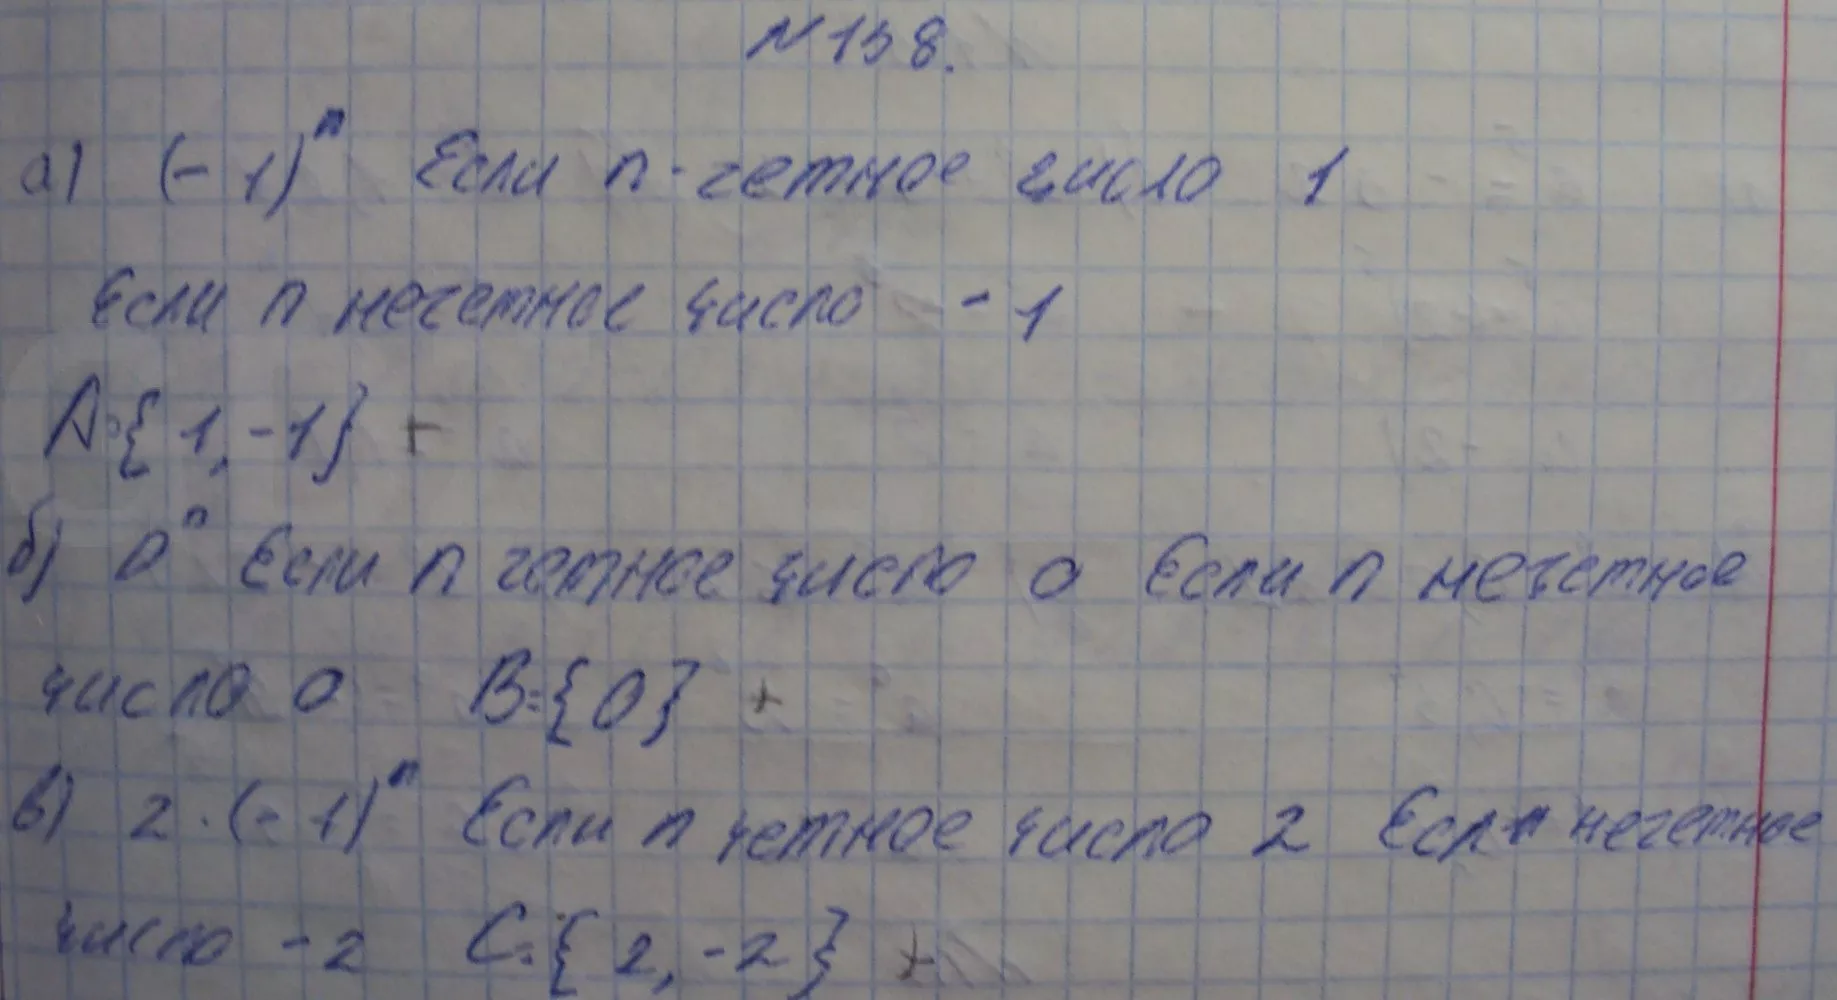 №158.
а) (-1)ⁿ Если n-четное число 1
Если n нечетное число -1
A={1,-1} +
б) 0ⁿ Если n четное число 0 Если n нечетное
число 0 B={0} +
в) 2·(-1)ⁿ Если n четное число 2 Если n нечетное
число -2 C={2,-2} +